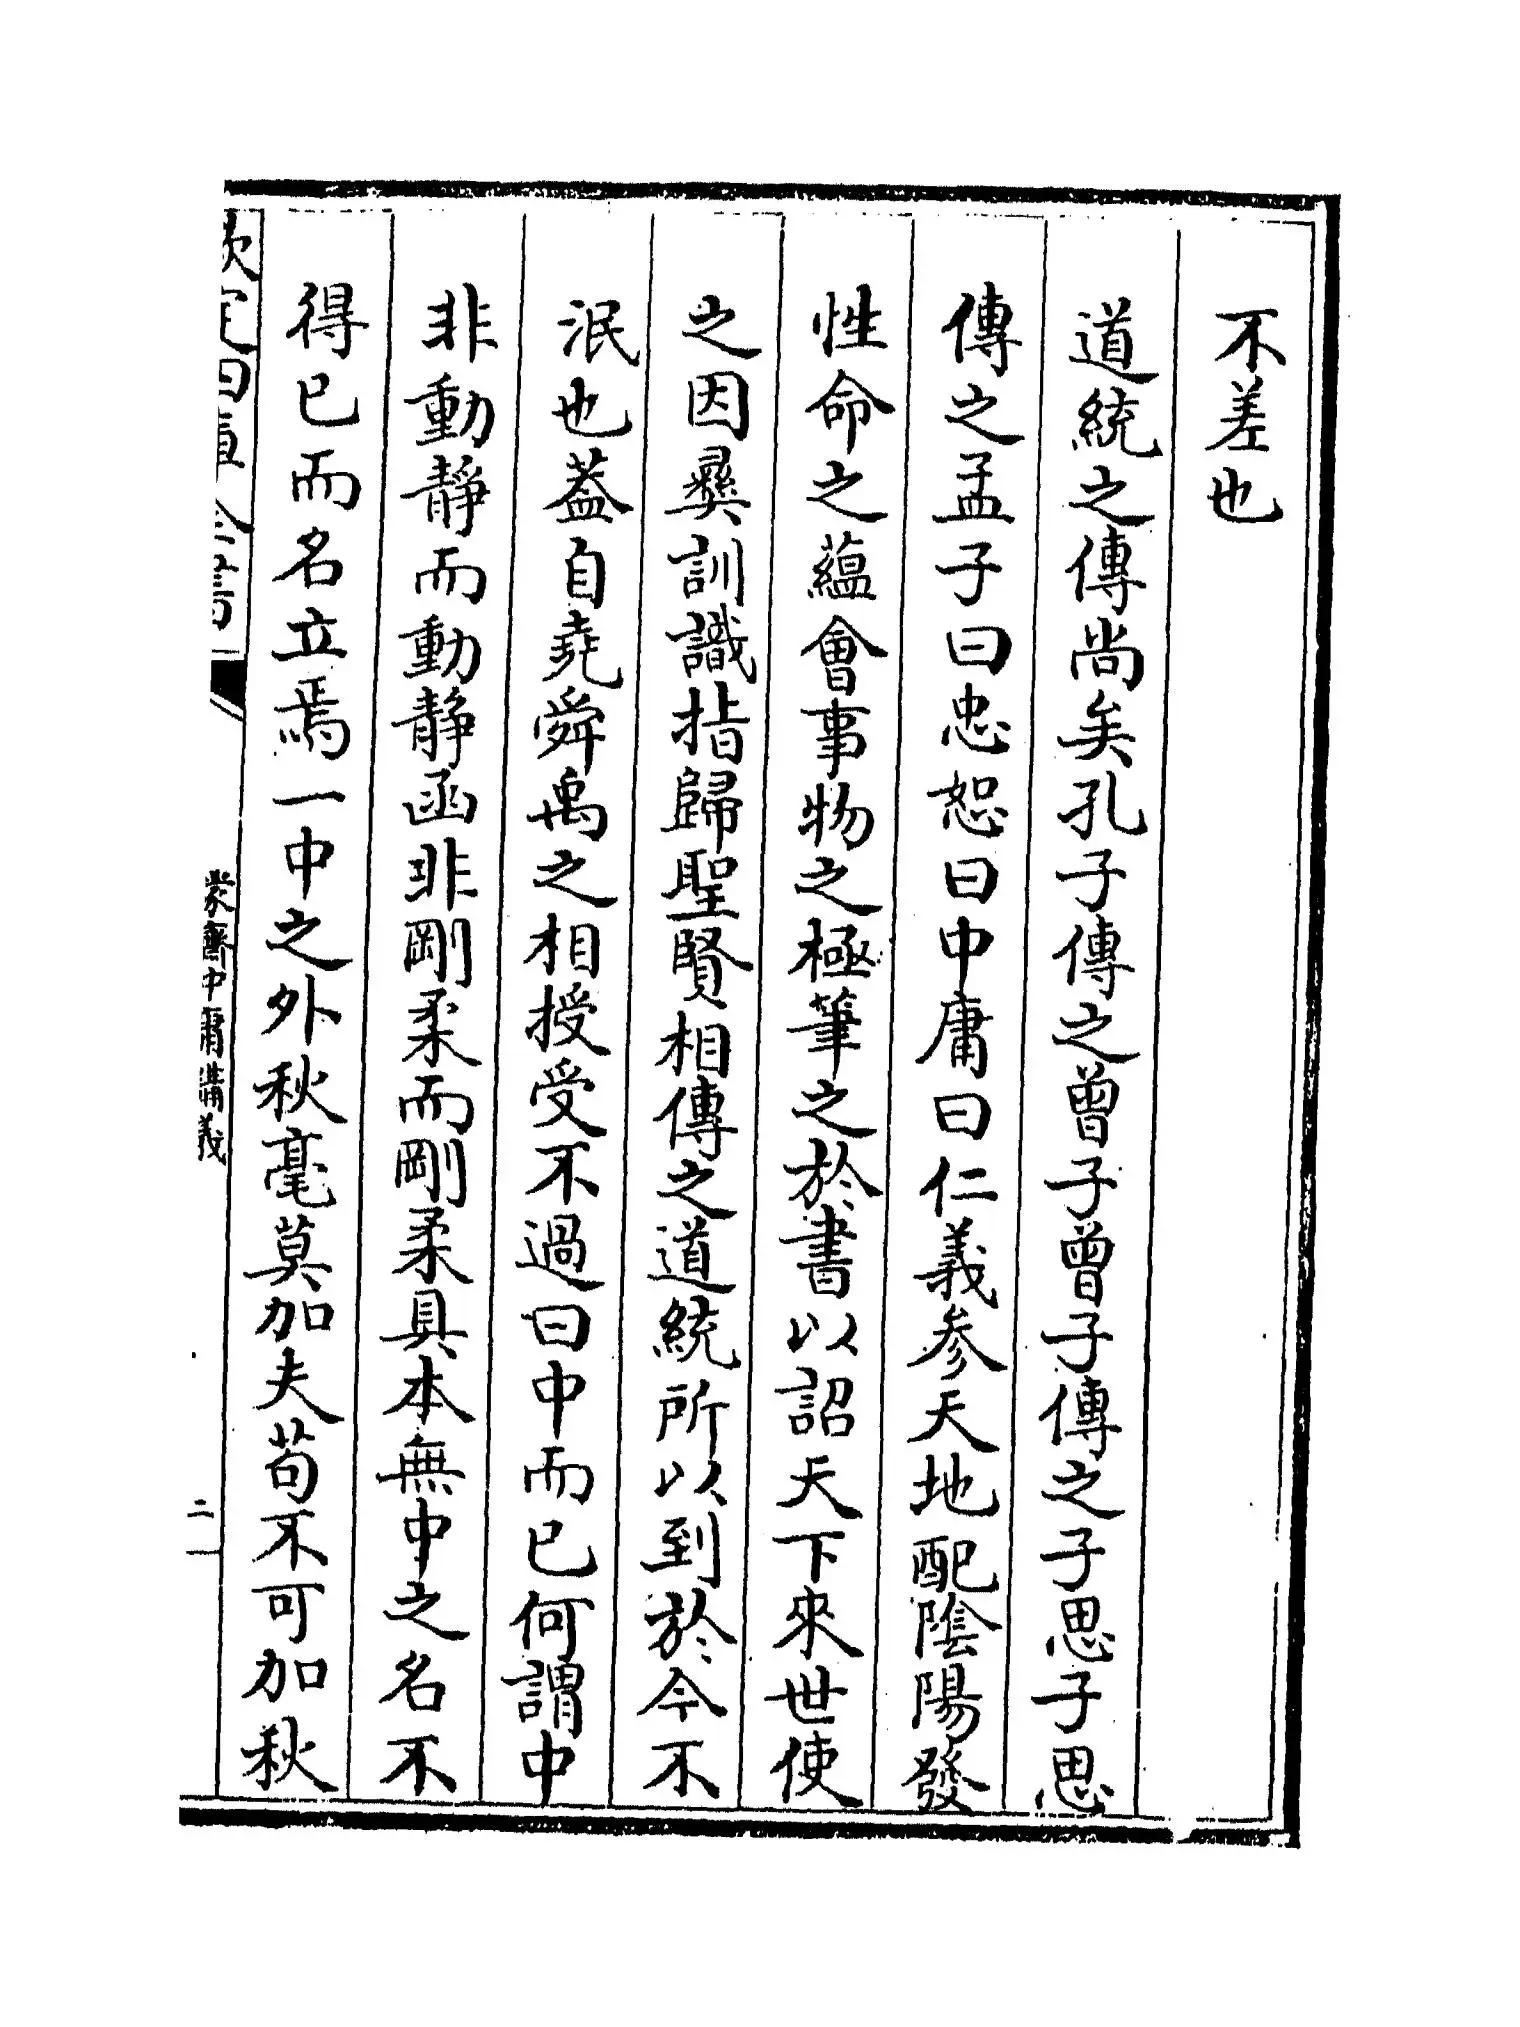 不差也
道統之傳尚矣孔子傳之曾子曾子傳之子思子思
傳之孟子曰忠恕曰中庸曰仁義參天地配陰陽發
性命之蘊會事物之極筆之於書以詔天下來世使
之因彛訓識指歸聖賢相傳之道統所以到於今不
泯也蓋自堯舜禹之相授受不過曰中而已何謂中
非動靜而動靜函非剛柔而剛柔具本無中之名不
得已而名立焉一中之外秋毫莫加夫苟不可加秋
欽定四庫全書
蒙齋中庸講義
二